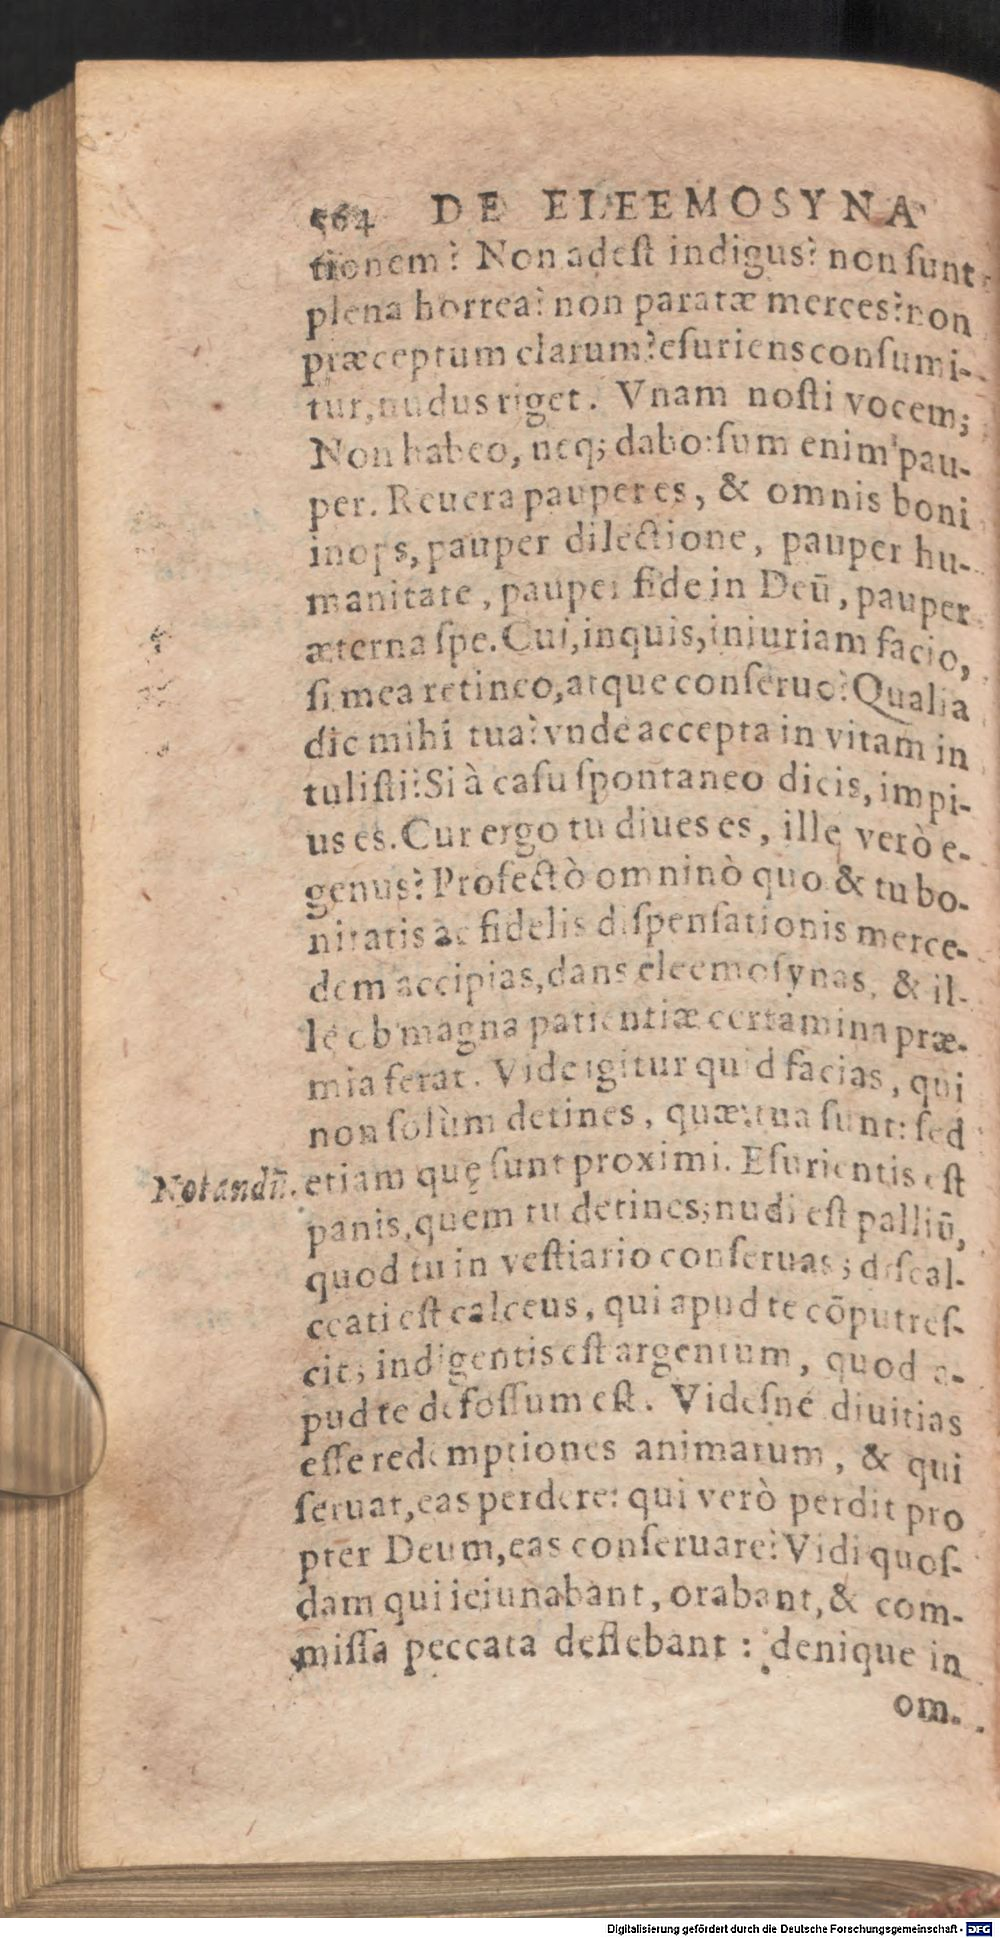 564 DE ELEEMOSYNA
tionem? Non adest indigus? non sunt
plena horrea? non paratæ merces? non
præceptum clarum? esuriens consumi-
tur, nudus riget. Vnam nosti vocem;
Non habeo, neq; dabo: sum enim pau-
per. Reuera pauper es, & omnis boni
inops, pauper dilectione, pauper hu-
manitate, pauper fide in Deū, pauper
æterna spe. Cui, inquis, iniuriam facio,
si mea retineo, atque conseruo? Qualia
dic mihi tua? vnde accepta in vitam in
tulisti? Si à casu spontaneo dicis, impi-
us es. Cur ergo tu diues es, ille verò e-
genus? Profectò omninò quo & tu bo-
nitatis ac fidelis dispensationis merce-
dem accipias, dans eleemosynas, & il-
le ob magna patientiæ certamina præ-
mia ferat. Vide igitur quid facias, qui
non solùm detines, quæ tua sunt: sed
Notandū. etiam quę sunt proximi. Esurientis est
panis, quem tu detines; nudi est palliū,
quod tu in vestiario conseruas; discal-
ceati est calceus, qui apud te cōputres-
cit; indigentis est argentum, quod a-
pud te defossum est. Videsnè diuitias
esse redemptiones animarum, & qui
seruat, eas perdere: qui verò perdit pro
pter Deum, eas conseruare? Vidi quos-
dam qui ieiunabant, orabant, & com-
missa peccata deflebant: denique in
om-
Digitalisierung gefördert durch die Deutsche Forschungsgemeinschaft - DFG